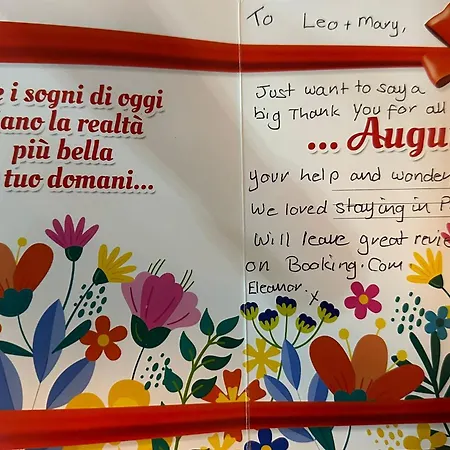 e i sogni di oggi
ano la realtà
più bella
tuo domani...
To Leo + Mary,
Just want to say a
big Thank you for all
... Augu
your help and wonder
We loved staying in P
Will leave great revie
on Booking.Com
Eleanor. x